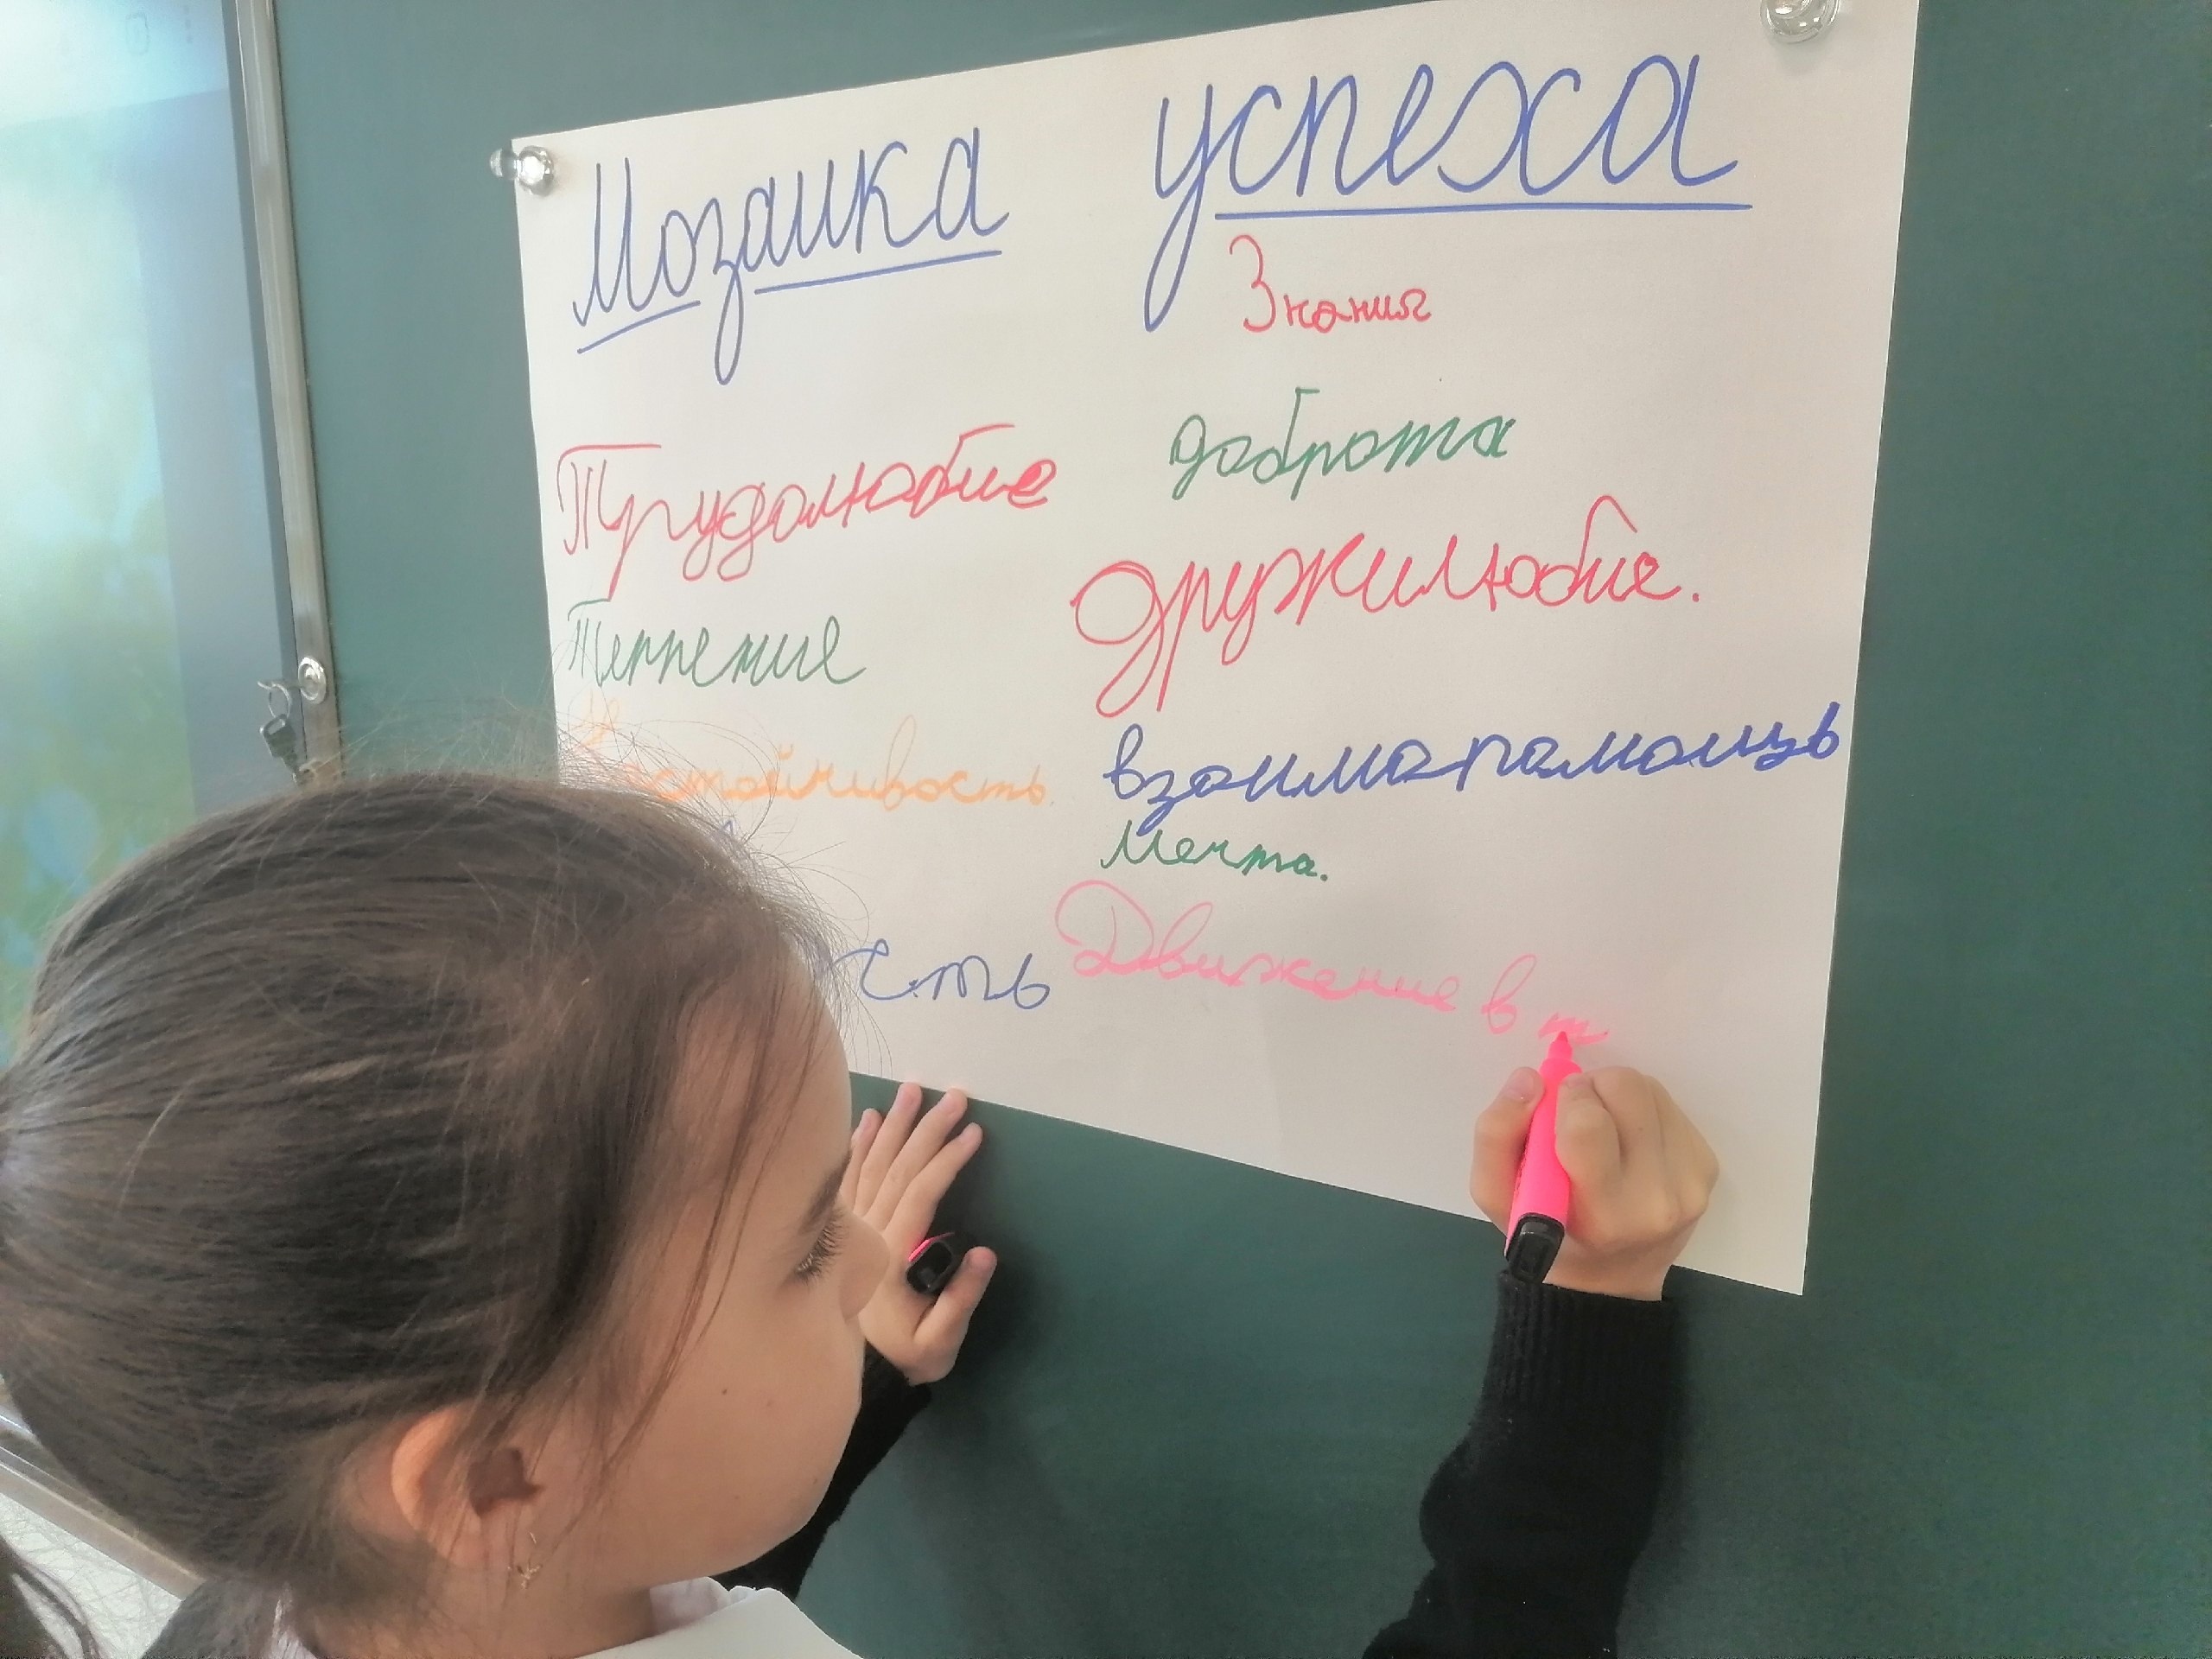 Мозаика успеха
Знания
Трудолюбие
доброта
дружилюбие.
Терпение
взаимапамощь
Мечта.
Движение в т